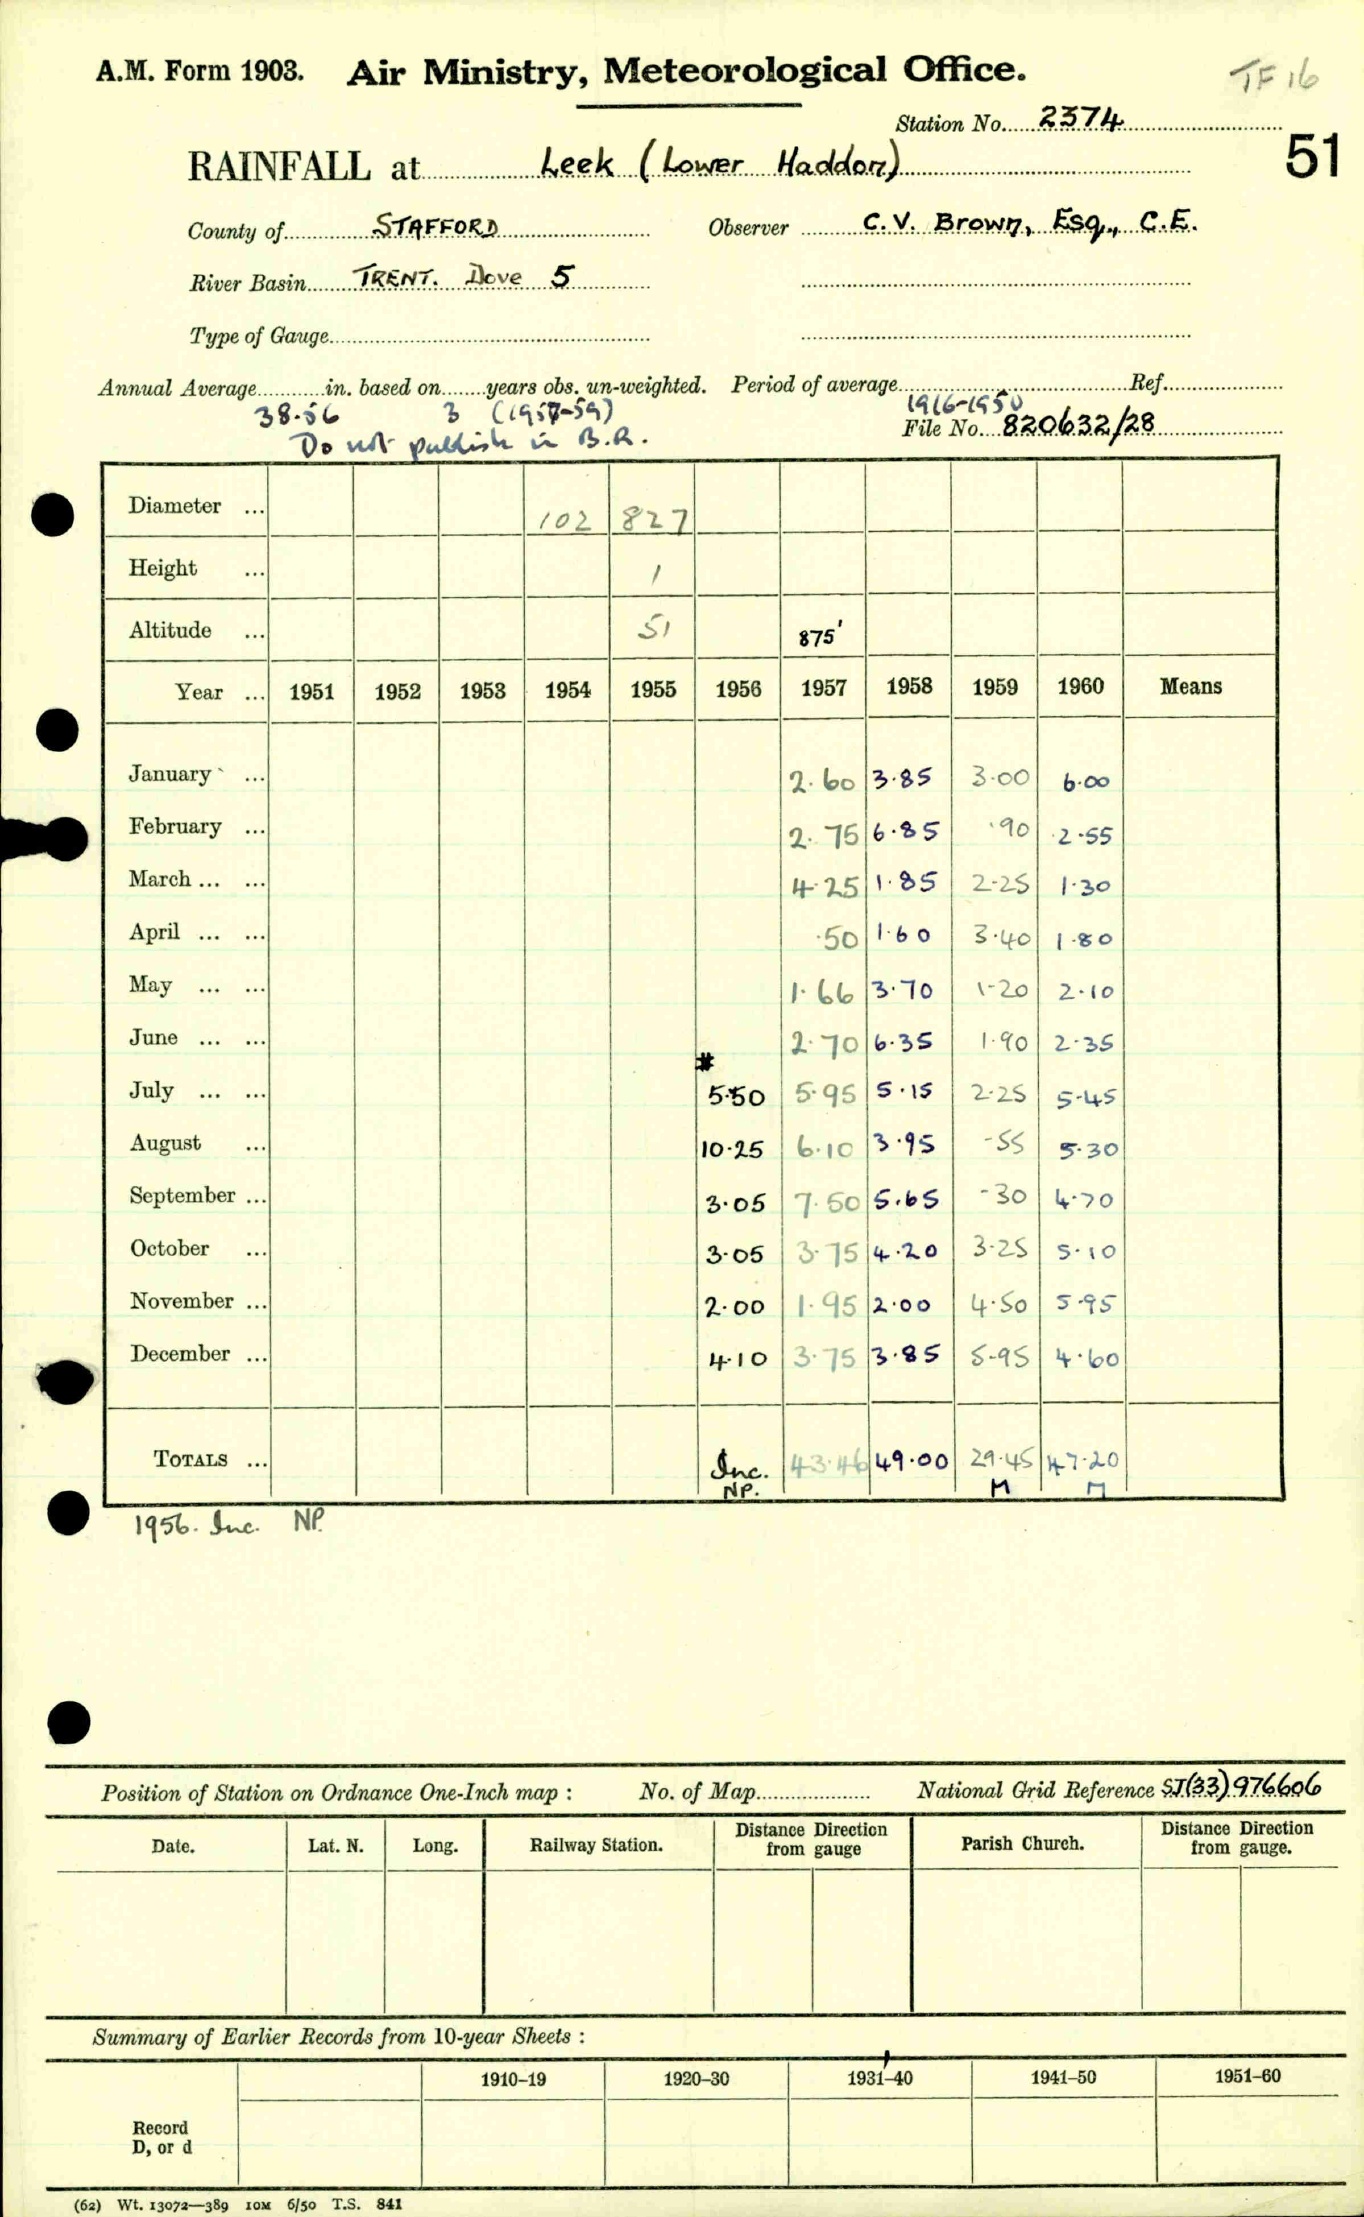 A.M. Form 1903. Air Ministry, Meteorological Office. TF 16
Station No. 2374
51
RAINFALL at Leek (Lower Haddon)
County of STAFFORD Observer C.V. Brown, Esq., C.E.
River Basin TRENT. Dove 5
Type of Gauge
Annual Average in. based on years obs. un-weighted. Period of average Ref.
38.56 3 (1957-59) 1916-1950
Do not publish in B.R. File No. 820632/28
Diameter ... 102 827
Height ... 1
Altitude ... 51 875'
Year ... 1951 1952 1953 1954 1955 1956 1957 1958 1959 1960 Means
January ... 2.60 3.85 3.00 6.00
February ... 2.75 6.85 .90 2.55
March ... ... 4.25 1.85 2.25 1.30
April ... ... .50 1.60 3.40 1.80
May ... ... 1.66 3.70 1.20 2.10
June ... ... 2.70 6.35 1.90 2.35
July ... ... # 5.50 5.95 5.15 2.25 5.45
August ... 10.25 6.10 3.95 .55 5.30
September ... 3.05 7.50 5.65 .30 4.70
October ... 3.05 3.75 4.20 3.25 5.10
November ... 2.00 1.95 2.00 4.50 5.95
December ... 4.10 3.75 3.85 5.95 4.60
TOTALS ... Inc. 43.46 49.00 29.45 47.20
NP. M M
1956. Inc. NP.
Position of Station on Ordnance One-Inch map : No. of Map National Grid Reference SJ(33)976606
Date. Lat. N. Long. Railway Station. Distance Direction from gauge Parish Church. Distance Direction from gauge.
Summary of Earlier Records from 10-year Sheets :
1910–19 1920–30 1931–40 1941–50 1951–60
Record
D, or d
(62) Wt. 13072—389 10M 6/50 T.S. 841